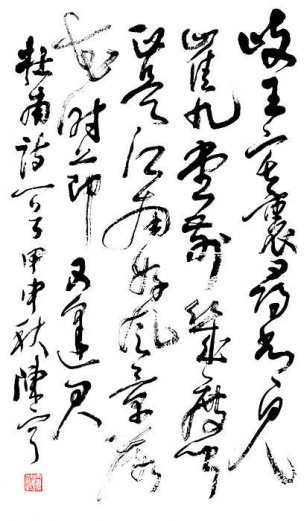 岐王宅裏尋常見
崔九堂前幾度聞
正是江南好風景落
花時節又逢君
杜甫詩一首甲申秋陳